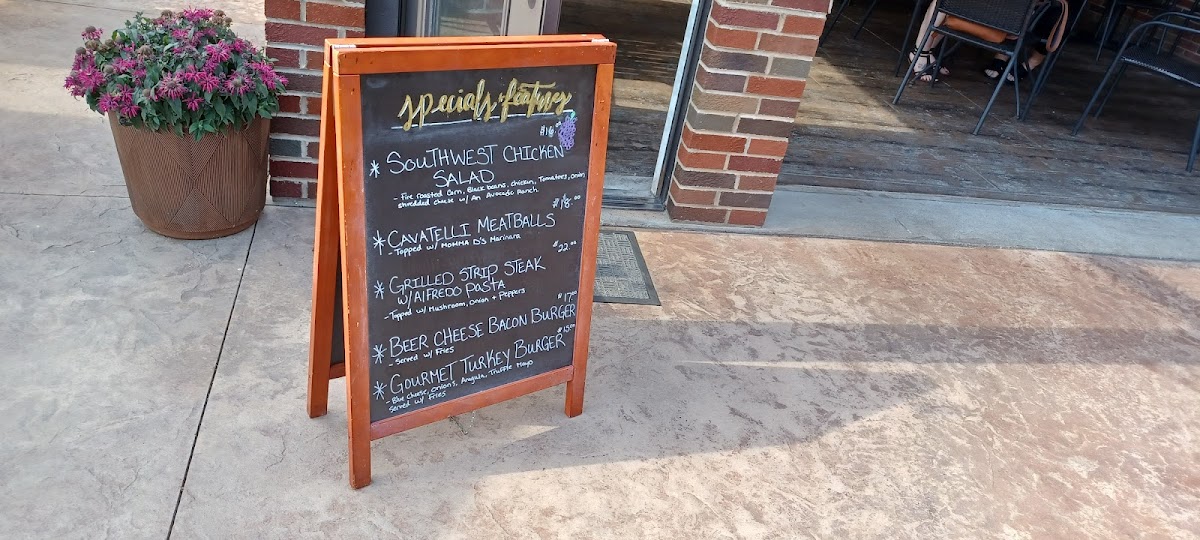 specials & features
$16.00
* SOUTHWEST CHICKEN
SALAD
- Fire roasted Corn, Black beans, chicken, Tomatoes, onion,
shredded cheese w/ An Avocado Ranch.
$18.00
* CAVATELLI MEATBALLS
- Topped w/ MOMMA D's Marinara
$22.00
* GRILLED STRIP STEAK
W/ AlFREDO PASTA
- Topped w/ Mushroom, Onion + Peppers
$17.00
* BEER CHEESE BACON BURGER
- Served w/ Fries
$15.00
* GOURMET TURKEY BURGER
- Blue Cheese, Onion's, Arugula, Truffle Mayo
Served w/ Fries